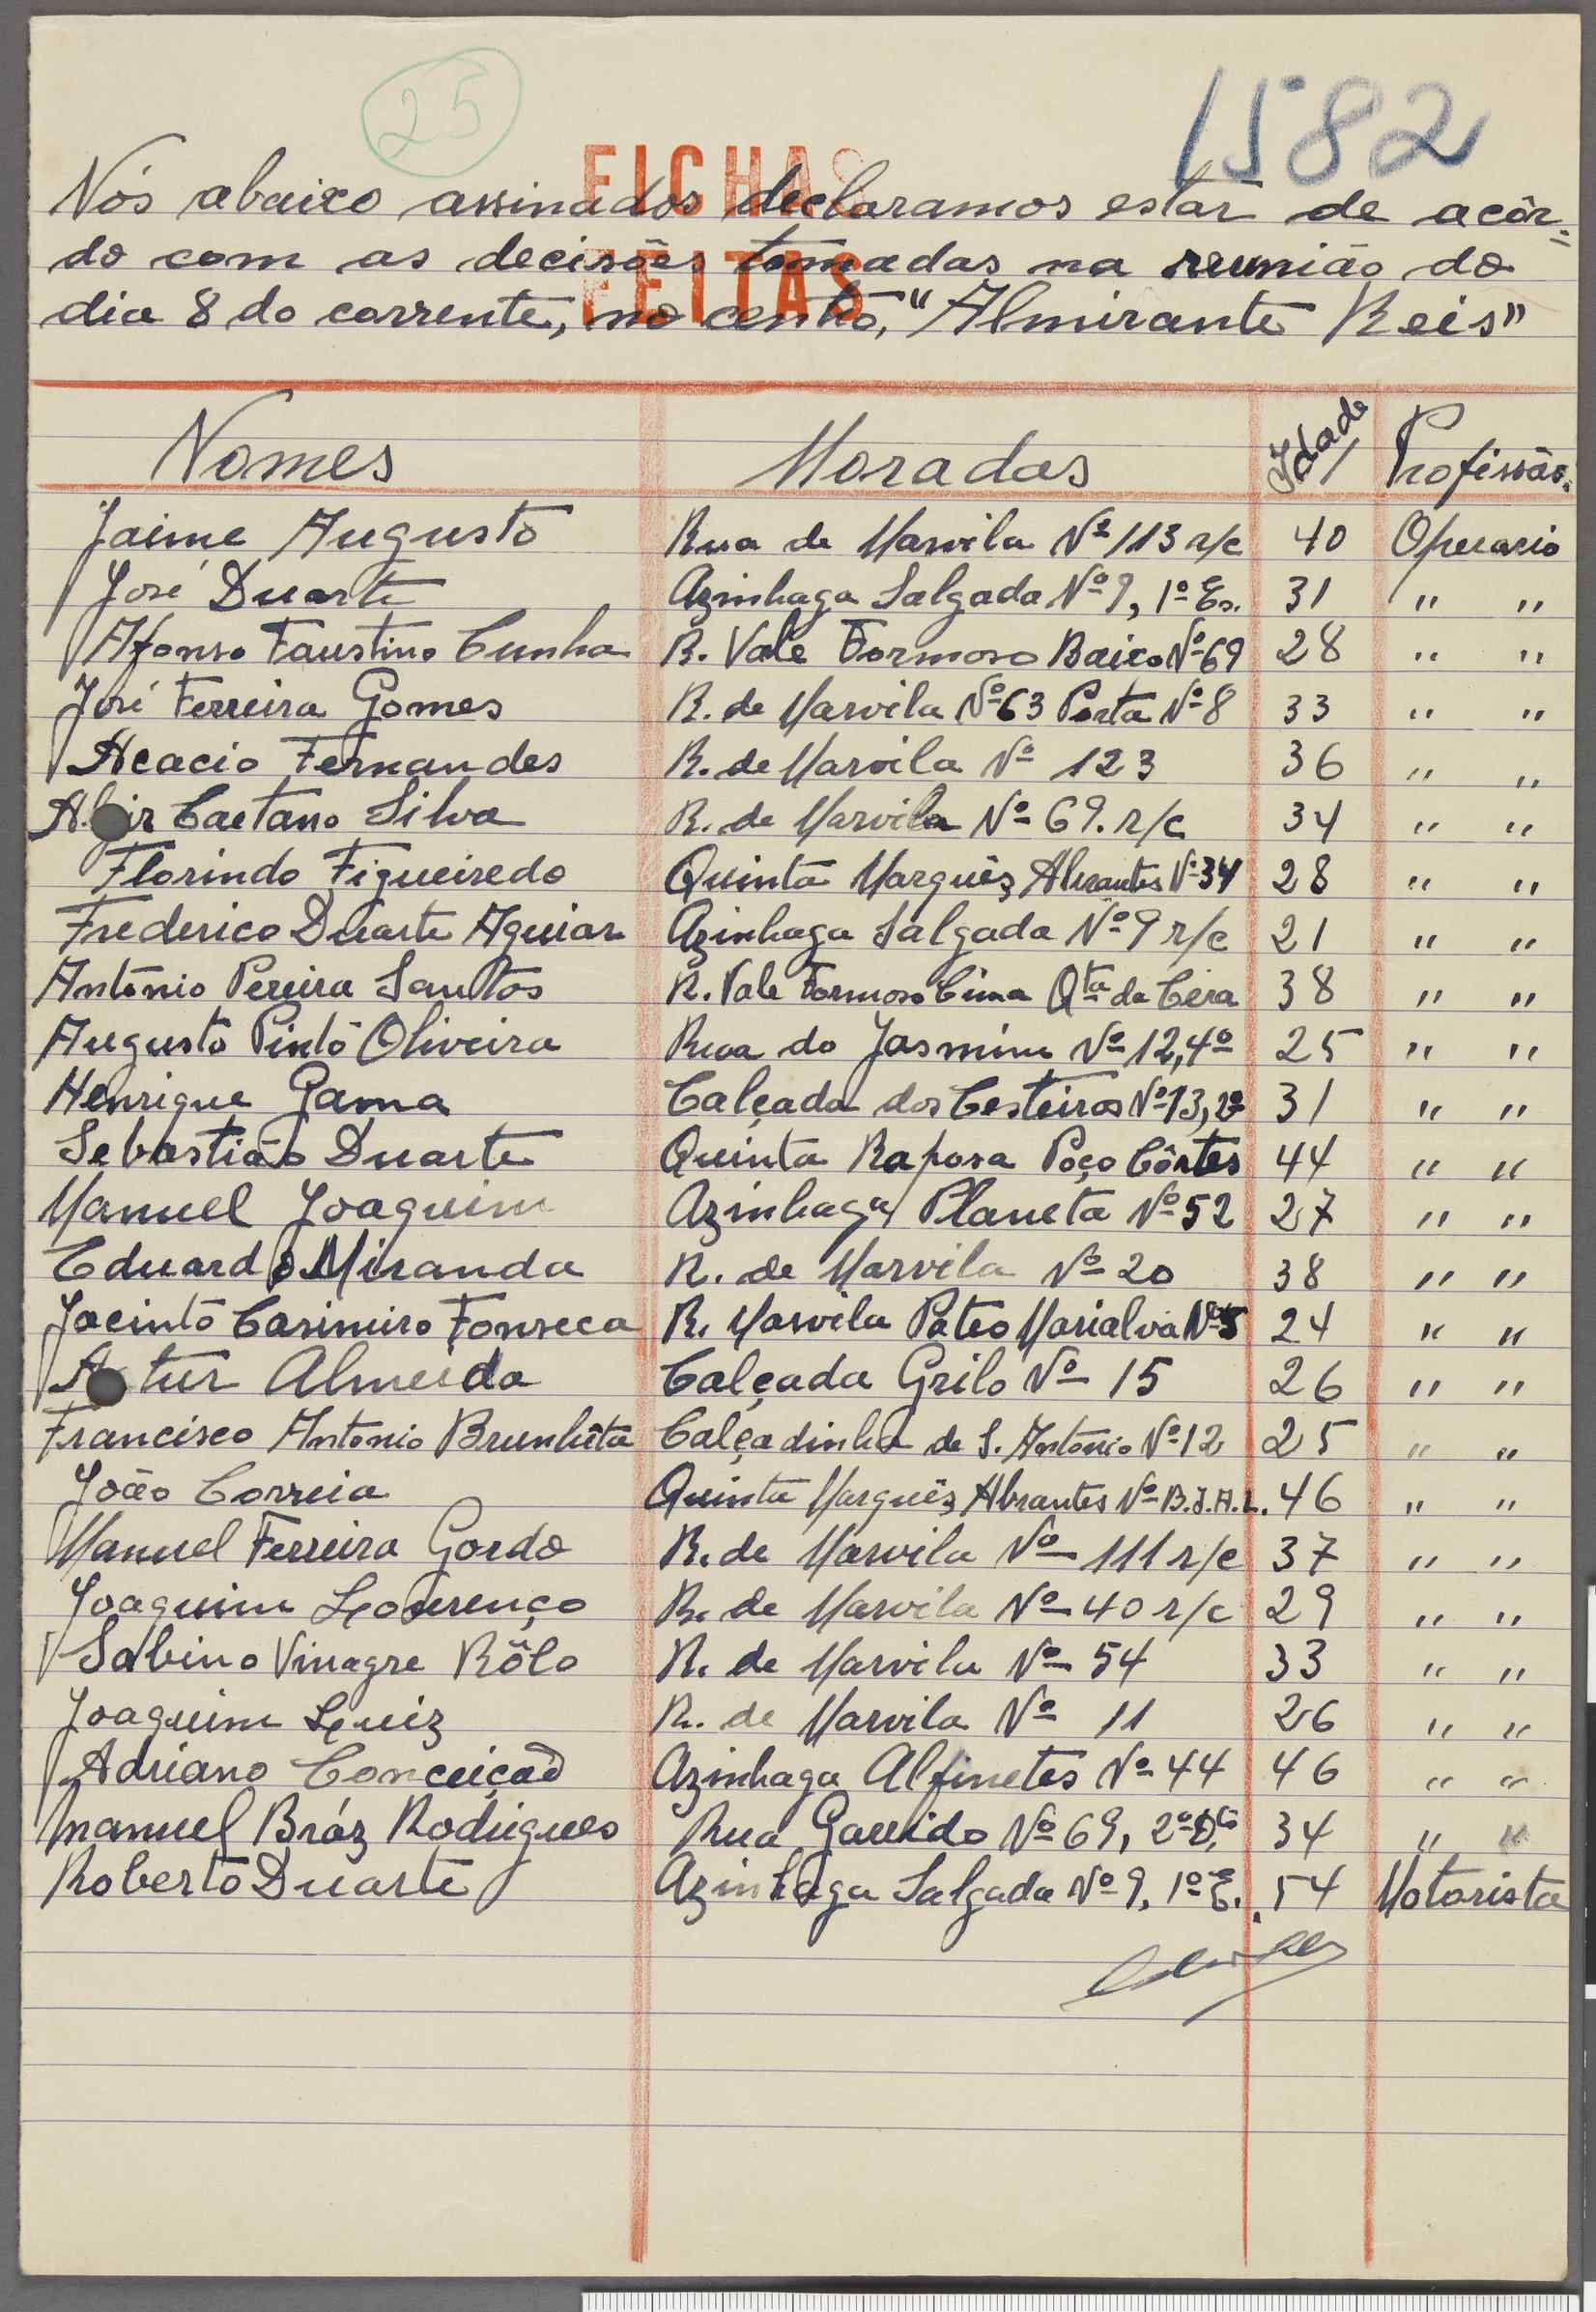 25
1582
FICHAS
FEITAS
Nós abaixo assinados declaramos estar de acôr=
do com as decisões tomadas na reunião do
dia 8 do corrente, no centro, "Almirante Reis"
Nomes Moradas Idade Profissão.
Jaime Augusto Rua de Marvila Nº 113 r/c 40 Operario
José Duarte Azinhaga Salgada Nº 9, 1º Es. 31 " "
Afonso Faustino Cunha R. Vale Formoso Baixo Nº 69 28 " "
José Ferreira Gomes R. de Marvila Nº 63 Porta Nº 8 33 " "
Acacio Fernandes R. de Marvila Nº 123 36 " "
Caetano Silva R. de Marvila Nº 69. r/c 34 " "
Florindo Figueiredo Quinta Marquês Abrantes Nº 34 28 " "
Frederico Duarte Aguiar Azinhaga Salgada Nº 9 r/c 21 " "
António Pereira Santos R. Vale Formoso Cima Qta da Cera 38 " "
Augusto Pinto Oliveira Rua do Jasmim Nº 12, 4º 25 " "
Henrique Gama Calçada dos Cesteiros Nº 13, 2º 31 " "
Sebastião Duarte Quinta Raposa Poço Côrtes 44 " "
Manuel Joaquim Azinhaga Planeta Nº 52 27 " "
Eduardo Miranda R. de Marvila Nº 20 38 " "
Jacinto Casimiro Fonseca R. Marvila Páteo Marialva Nº 5 24 " "
A tur Almeida Calçada Grilo Nº 15 26 " "
Francisco Antonio Brunhêta Calçadinha de S. António Nº 12 25 " "
João Correia Quinta Marquês Abrantes Nº B.J.A.L. 46 " "
Manuel Ferreira Gordo R. de Marvila Nº 111 r/c 37 " "
Joaquim Lourenço R. de Marvila Nº 40 r/c 29 " "
Sabino Vinagre Rôlo R. de Marvila Nº 54 33 " "
Joaquim Luiz R. de Marvila Nº 11 26 " "
Adriano Conceição Azinhaga Alfinetes Nº 44 46 " "
Manuel Bráz Rodrigues Rua Garrido Nº 69, 2º Dto 34 " "
Roberto Duarte Azinhaga Salgada Nº 9, 1º E. 54 Motorista